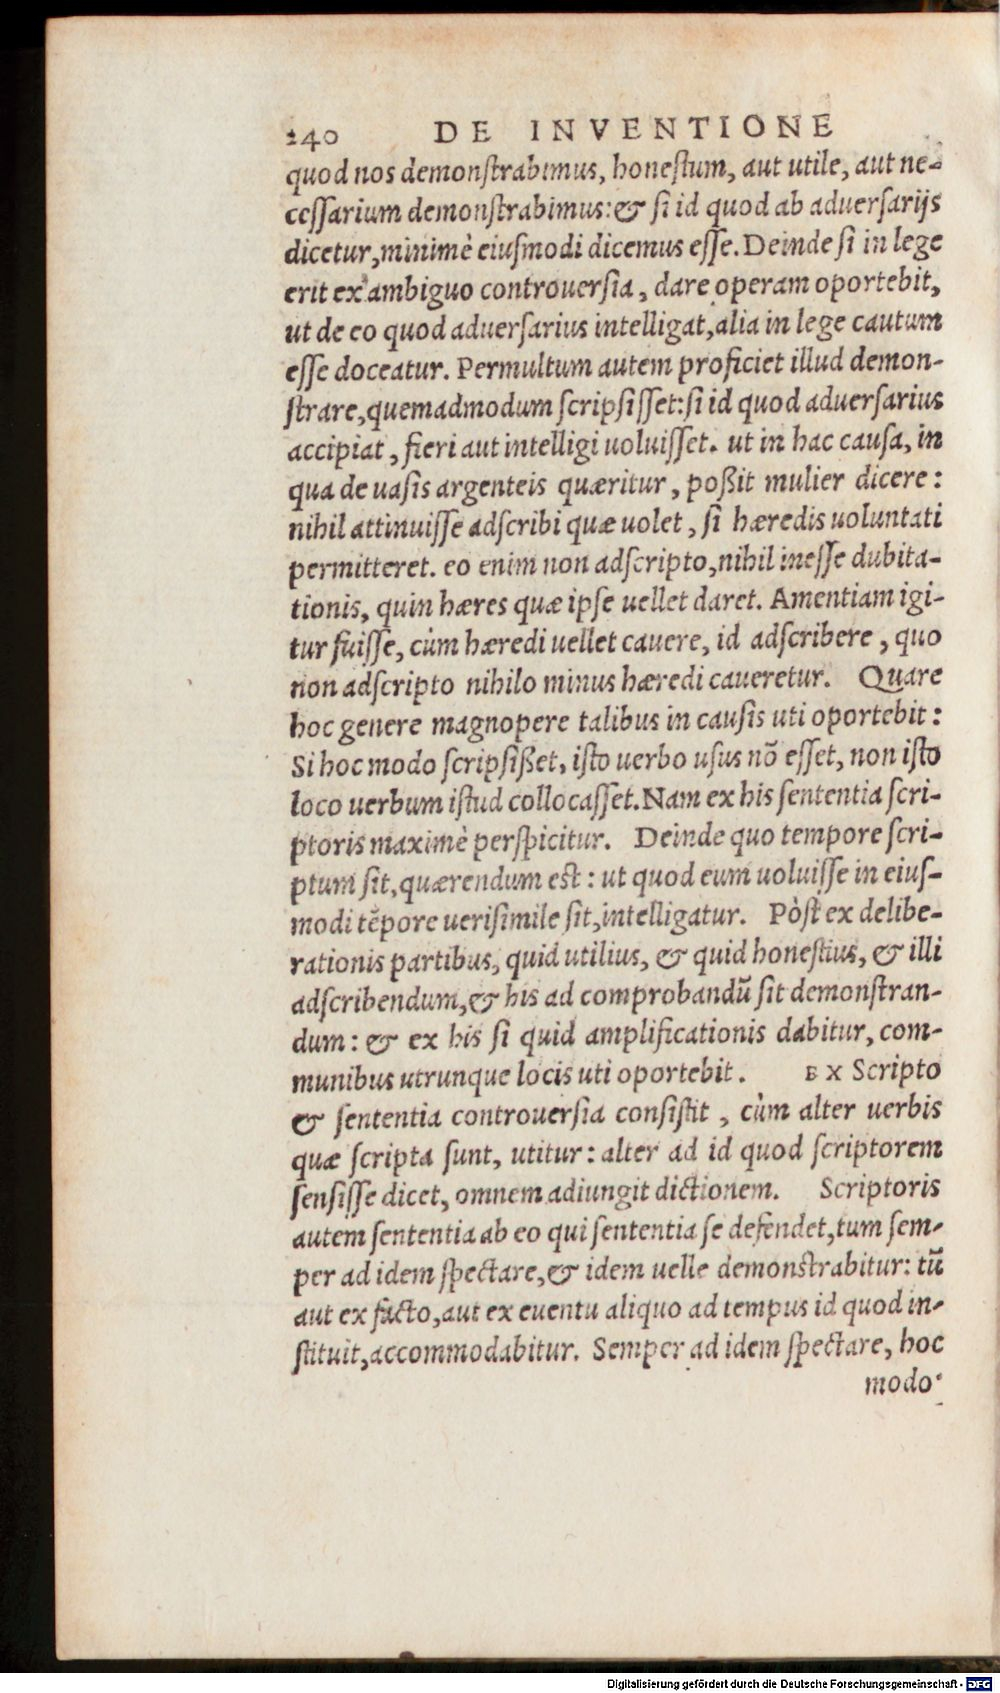 240 DE INVENTIONE
quod nos demonſtrabimus, honeſtum, aut utile, aut ne-
ceſſarium demonſtrabimus: & ſi id quod ab aduerſarijs
dicetur, minimè eiuſmodi dicemus eſſe. Deinde ſi in lege
erit ex ambiguo controuerſia, dare operam oportebit,
ut de eo quod aduerſarius intelligat, alia in lege cautum
eſſe doceatur. Permultum autem proficiet illud demon-
ſtrare, quemadmodum ſcripſiſſet: ſi id quod aduerſarius
accipiat, fieri aut intelligi uoluiſſet. ut in hac cauſa, in
qua de uaſis argenteis quæritur, poßit mulier dicere:
nihil attinuiſſe adſcribi quæ uolet, ſi hæredis uoluntati
permitteret. eo enim non adſcripto, nihil ineſſe dubita-
tionis, quin hæres quæ ipſe uellet daret. Amentiam igi-
tur fuiſſe, cùm hæredi uellet cauere, id adſcribere, quo
non adſcripto nihilo minus hæredi caueretur. Quare
hoc genere magnopere talibus in cauſis uti oportebit:
Si hoc modo ſcripſißet, iſto uerbo uſus nõ eſſet, non iſto
loco uerbum iſtud collocaſſet. Nam ex his ſententia ſcri-
ptoris maximè perſpicitur. Deinde quo tempore ſcri-
ptum ſit, quærendum est: ut quod eum uoluiſſe in eiuſ-
modi tẽpore ueriſimile ſit, intelligatur. Pòſt ex delibe-
rationis partibus, quid utilius, & quid honeſtius, & illi
adſcribendum, & his ad comprobandũ ſit demonſtran-
dum: & ex his ſi quid amplificationis dabitur, com-
munibus utrunque locis uti oportebit. EX Scripto
& ſententia controuerſia conſiſtit, cùm alter uerbis
quæ ſcripta ſunt, utitur: alter ad id quod ſcriptorem
ſenſiſſe dicet, omnem adiungit dictionem. Scriptoris
autem ſententia ab eo qui ſententia ſe defendet, tum ſem-
per ad idem ſpectare, & idem uelle demonstrabitur: tũ
aut ex facto, aut ex euentu aliquo ad tempus id quod in-
ſtituit, accommodabitur. Semper ad idem ſpectare, hoc
modo
Digitalisierung gefördert durch die Deutsche Forschungsgemeinschaft - DFG